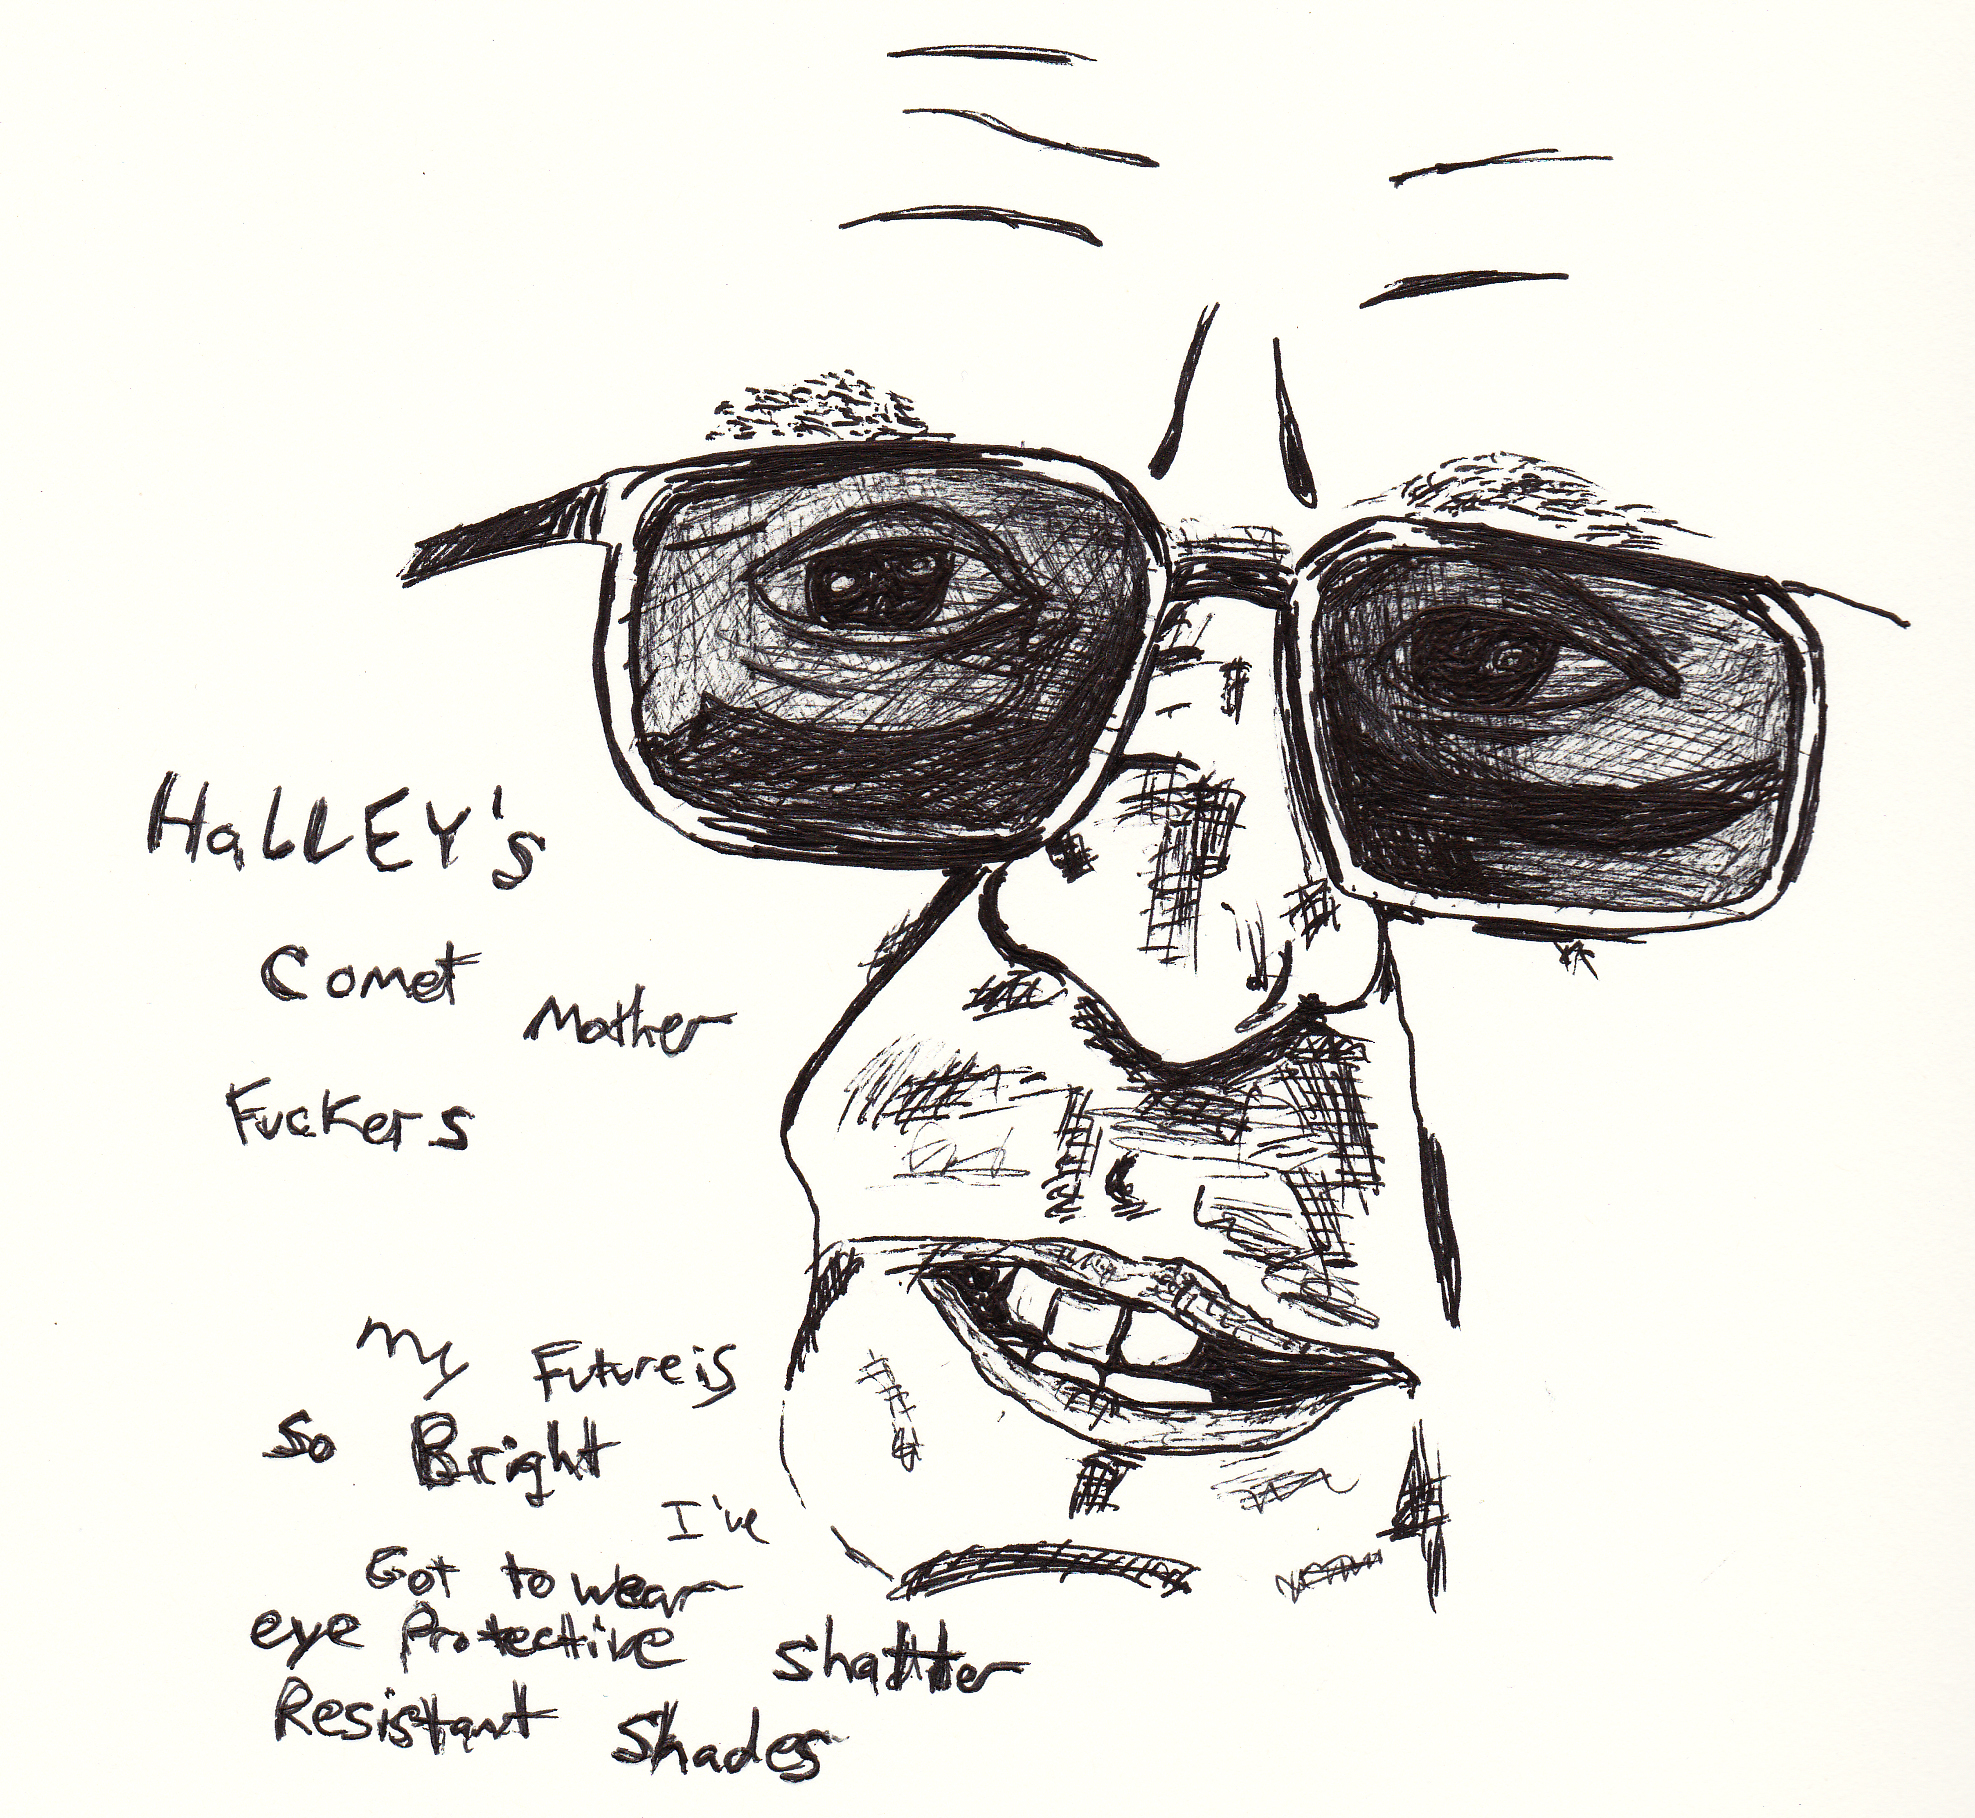 HaLLEY's
Comet
Mother
Fuckers
My Future is
So Bright
I've
Got to wear
eye Protective shatter
Resistant Shades